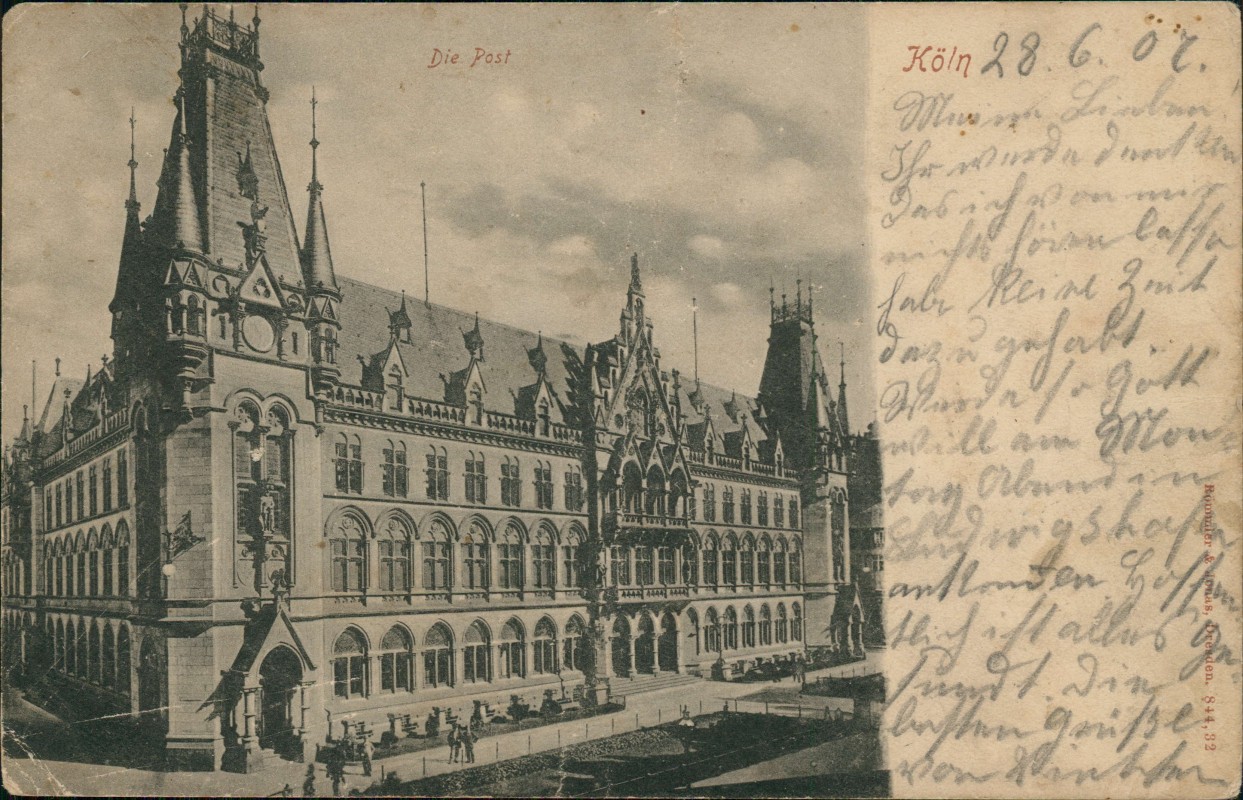 Die Post
Köln 28. 6. 07.
Meine Lieben
Ihr werde denken
Das ich von mir
nichts hören lasse
habe keine Zeit
dazu gehabt.
Werde so Gott
will am Mon-
tag Abend in
Ludwigshafen
ankomen Hoffen-
tlich ist alles ge-
sundt. Die
besten Grüße
von
Römmler & Jonas, Dresden. 844,32